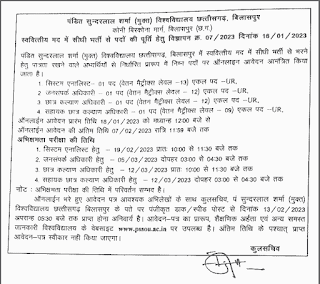 पंडित सुन्दरलाल शर्मा (मुक्त) विश्वविद्यालय छत्तीसगढ़, बिलासपुर
कोनी बिरकोना मार्ग, बिलासपुर (छ.ग.)
स्ववित्तीय मद में सीधी भर्ती से पदों की पूर्ति हेतु विज्ञापन क्र. 07/2023 दिनांक 16/01/2023
पंडित सुन्दरलाल शर्मा (मुक्त) विश्वविद्यालय छत्तीसगढ़, बिलासपुर में स्ववित्तीय मद में सीधी भरने
हेतु पात्रता रखने वाले अभ्यर्थियों से निर्धारित प्रारूप में निम्न पदों पर ऑनलाईन आवेदन आमंत्रित
किया जाता है।
1. सिस्टम एनालिस्ट- 01 पद (वेतन मैट्रिक्स लेवल -13) एकल पद -UR,
2. जनसंपर्क अधिकारी - 01 पद (वेतन मैट्रिक्स लेवल - 12) एकल पद -UR,
3. छात्र कल्याण अधिकारी - 01 पद (वेतन मैट्रिक्स लेवल - 12) एकल पद -UR,
4. सहायक छात्र कल्याण अधिकारी - 01 पद (वेतन मैट्रिक्स लेवल - 09) एकल पद -UR,
ऑनलाईन आवेदन प्रारंभ तिथि 18/01/2023 को मध्यान्ह 12:00 बजे से
ऑनलाईन आवेदन की अंतिम तिथि 07/02/2023 रात्रि 11:59 बजे तक
अभिक्षमता परीक्षा की तिथि
1. सिस्टम एनालिस्ट हेतु - 19/02/2023 प्रातः 10:00 से 11:30 बजे तक
2. जनसंपर्क अधिकारी हेतु - 05/03/2023 दोपहर 03:00 से 04:30 बजे तक
3. छात्र कल्याण अधिकारी हेतु - 12/03/2023 प्रातः 10:00 से 11:30 बजे तक
4. सहायक छात्र कल्याण अधिकारी हेतु - 12/03/2023 दोपहर 03:00 से 04:30 बजे तक
नोट : अभिक्षमता परीक्षा की तिथि में परिवर्तन सम्भव है।
ऑनलाईन भरे हुए आवेदन पत्र आवश्यक अभिलेखों के साथ कुलसचिव, पं सुन्दरलाल शर्मा (मुक्त)
विश्वविद्यालय छत्तीसगढ़ बिलासपुर के पते पर पंजीकृत डाक/स्पीड पोस्ट से दिनांक 13/02/2023
अपरान्ह 05:30 बजे तक प्राप्त होना अनिवार्य है। आवेदन-पत्र का प्रारूप, शैक्षणिक अर्हता एवं अन्य समस्त
जानकारी विश्वविद्यालय के वेबसाइट www.pssou.ac.in पर उपलब्ध है। अंतिम तिथि के पश्चात् प्राप्त
आवेदन-पत्र स्वीकार नहीं किया जाएगा।
कुलसचिव